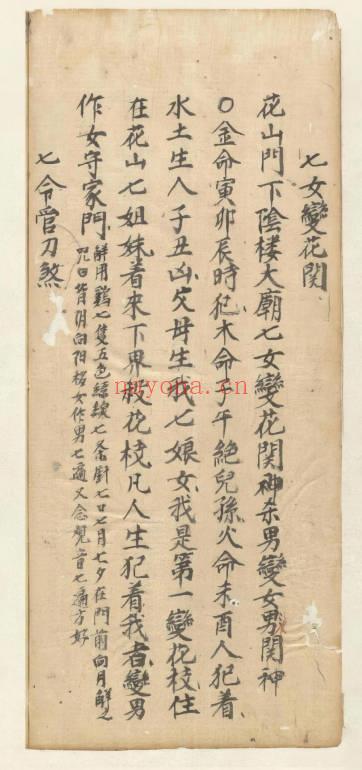 七女變花関
花山門下陰楼大廟七女變花関神杀男變女男関神
〇金命寅卯辰時犯木命子午絶兒孫火命未酉人犯着
水土生人子丑凶父母生我七娘女我是第一變花枝住
在花山七姐妹着來下界救花枝凡人生犯着我者變男
作女守家門
解用鷄七隻五色綵線七條針七口七月七夕在門前向月解之
咒曰背阴向阳移女作男七遍又念観音七遍方好
七令官刀煞
nayona.cn